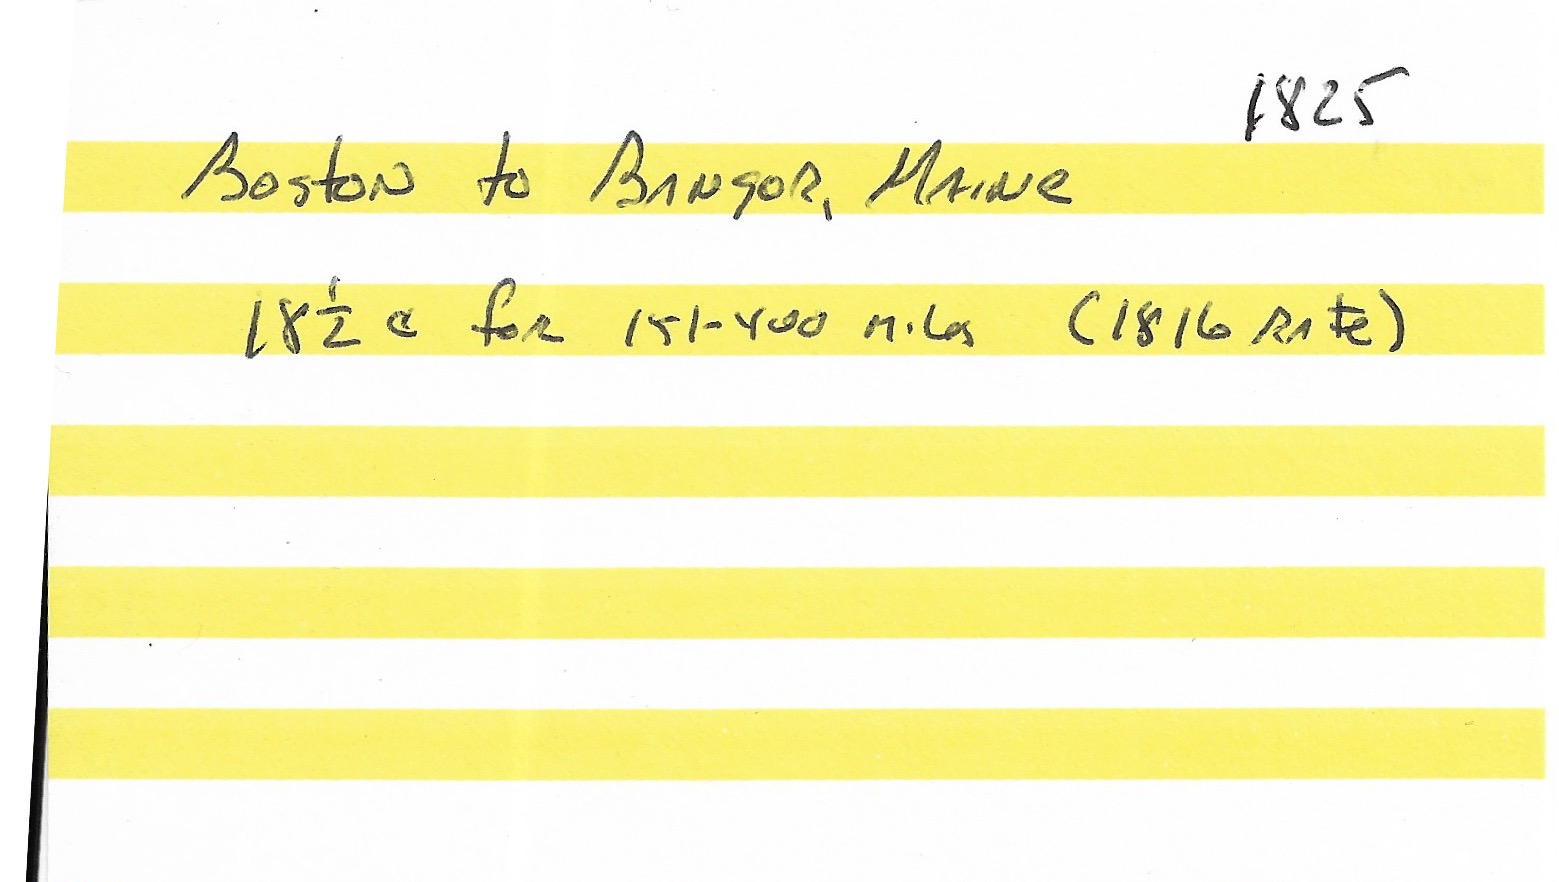 1825
Boston to Bangor, Maine
18 1/2 ¢ for 151-400 miles (1816 rate)